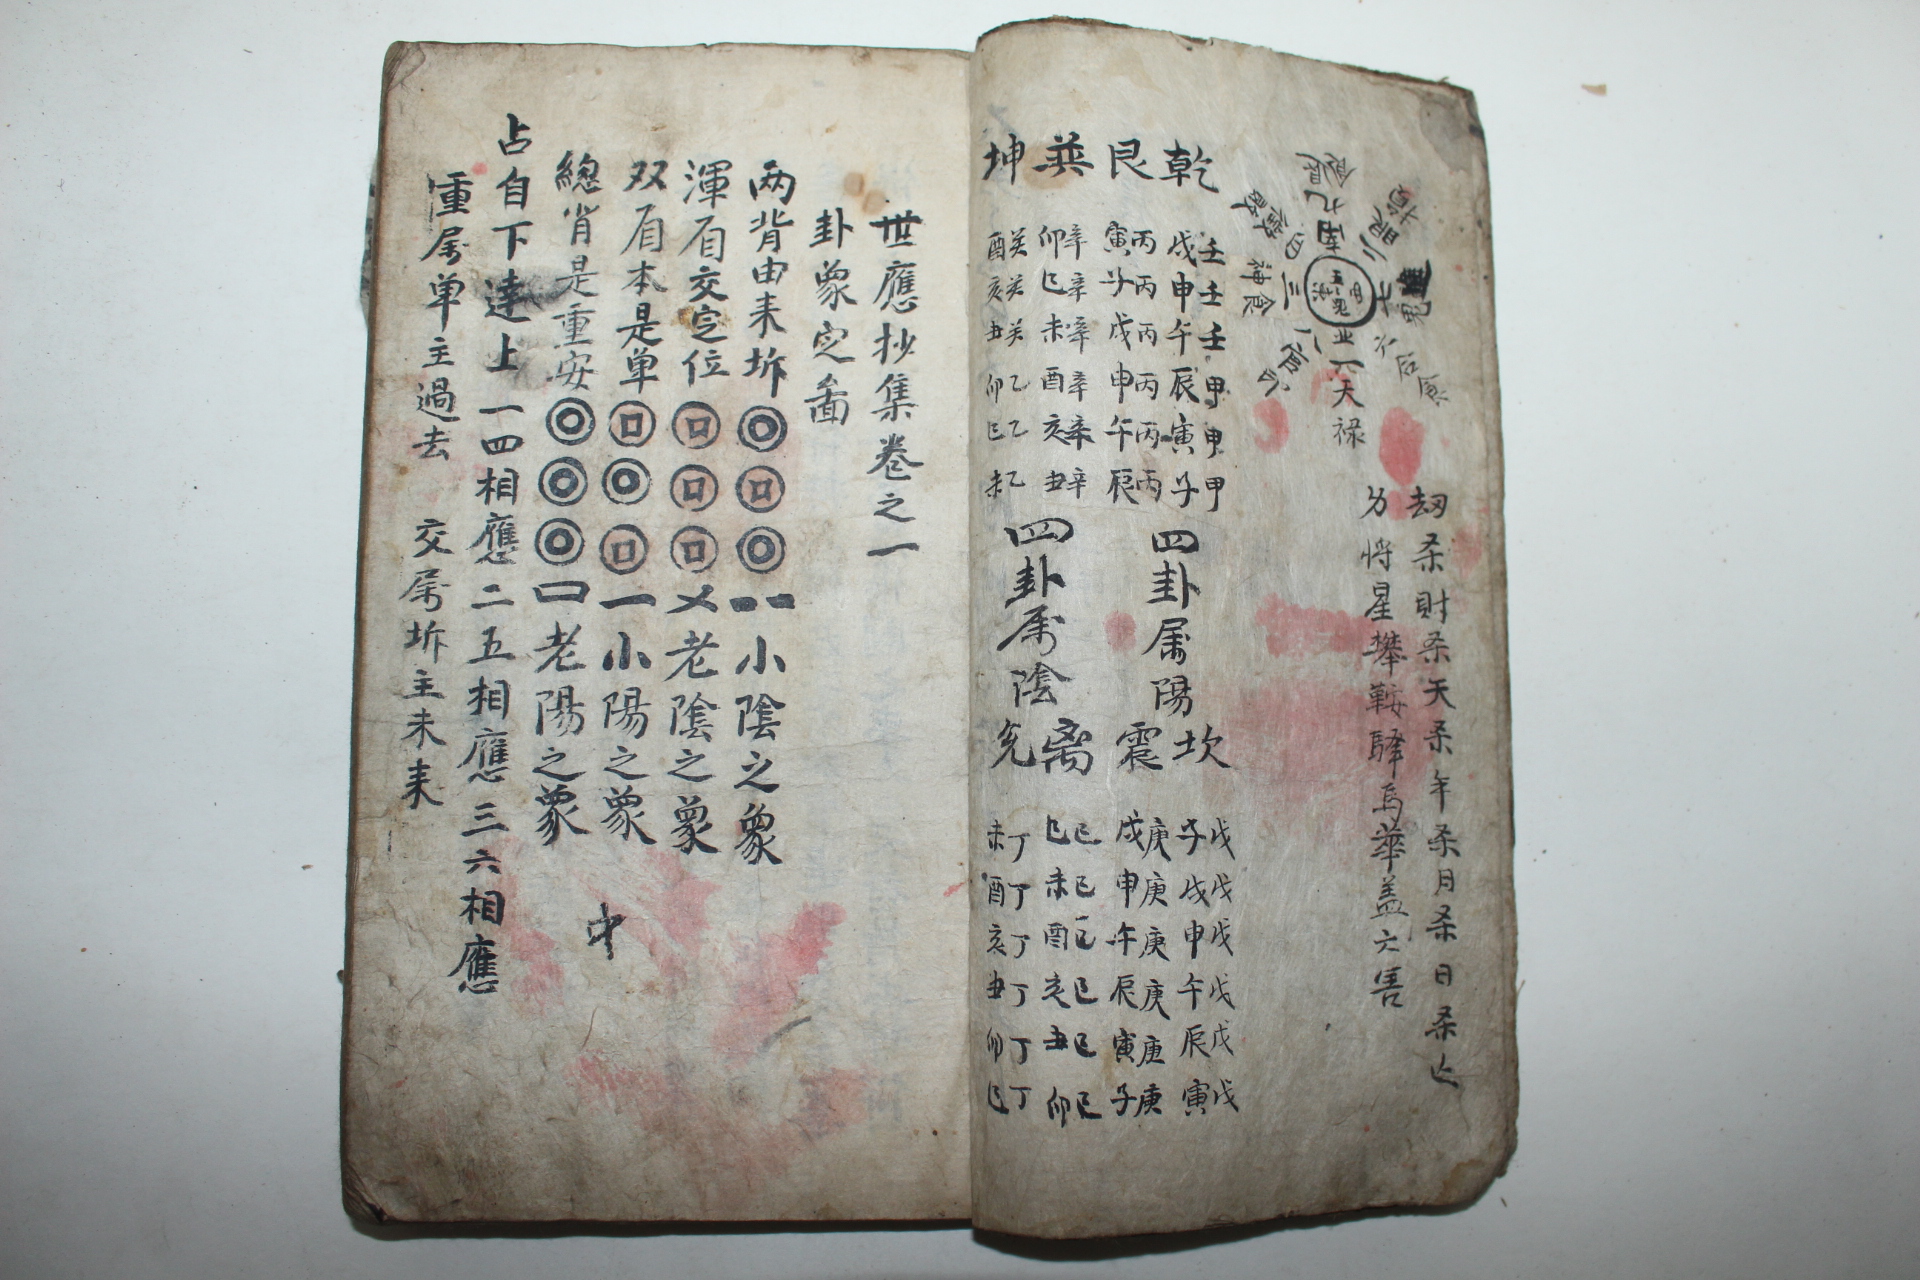 劫杀財杀天杀年杀月杀日杀亡
将星攀鞍驿馬華盖六害
天禄
乾
壬壬壬甲甲甲
戌申午辰寅子
艮
丙丙丙丙丙丙
寅子戌申午辰
巽
辛辛辛辛辛辛
卯巳未酉亥丑
坤
癸癸癸乙乙乙
酉亥丑卯巳未
四卦属陽
四卦属陰
坎
戊戊戊戊戊戊
子戌申午辰寅
震
庚庚庚庚庚庚
戌申午辰寅子
离
巳巳巳巳巳巳
巳未酉亥丑卯
兌
丁丁丁丁丁丁
未酉亥丑卯巳
世應抄集卷之一
卦象定啚
两背由来坼 小陰之象
渾眉交定位 老陰之象
双眉本是单 小陽之象
總背是重安 老陽之象
占自下達上一四相應二五相應三六相應
重属单主過去 交属坼主未来